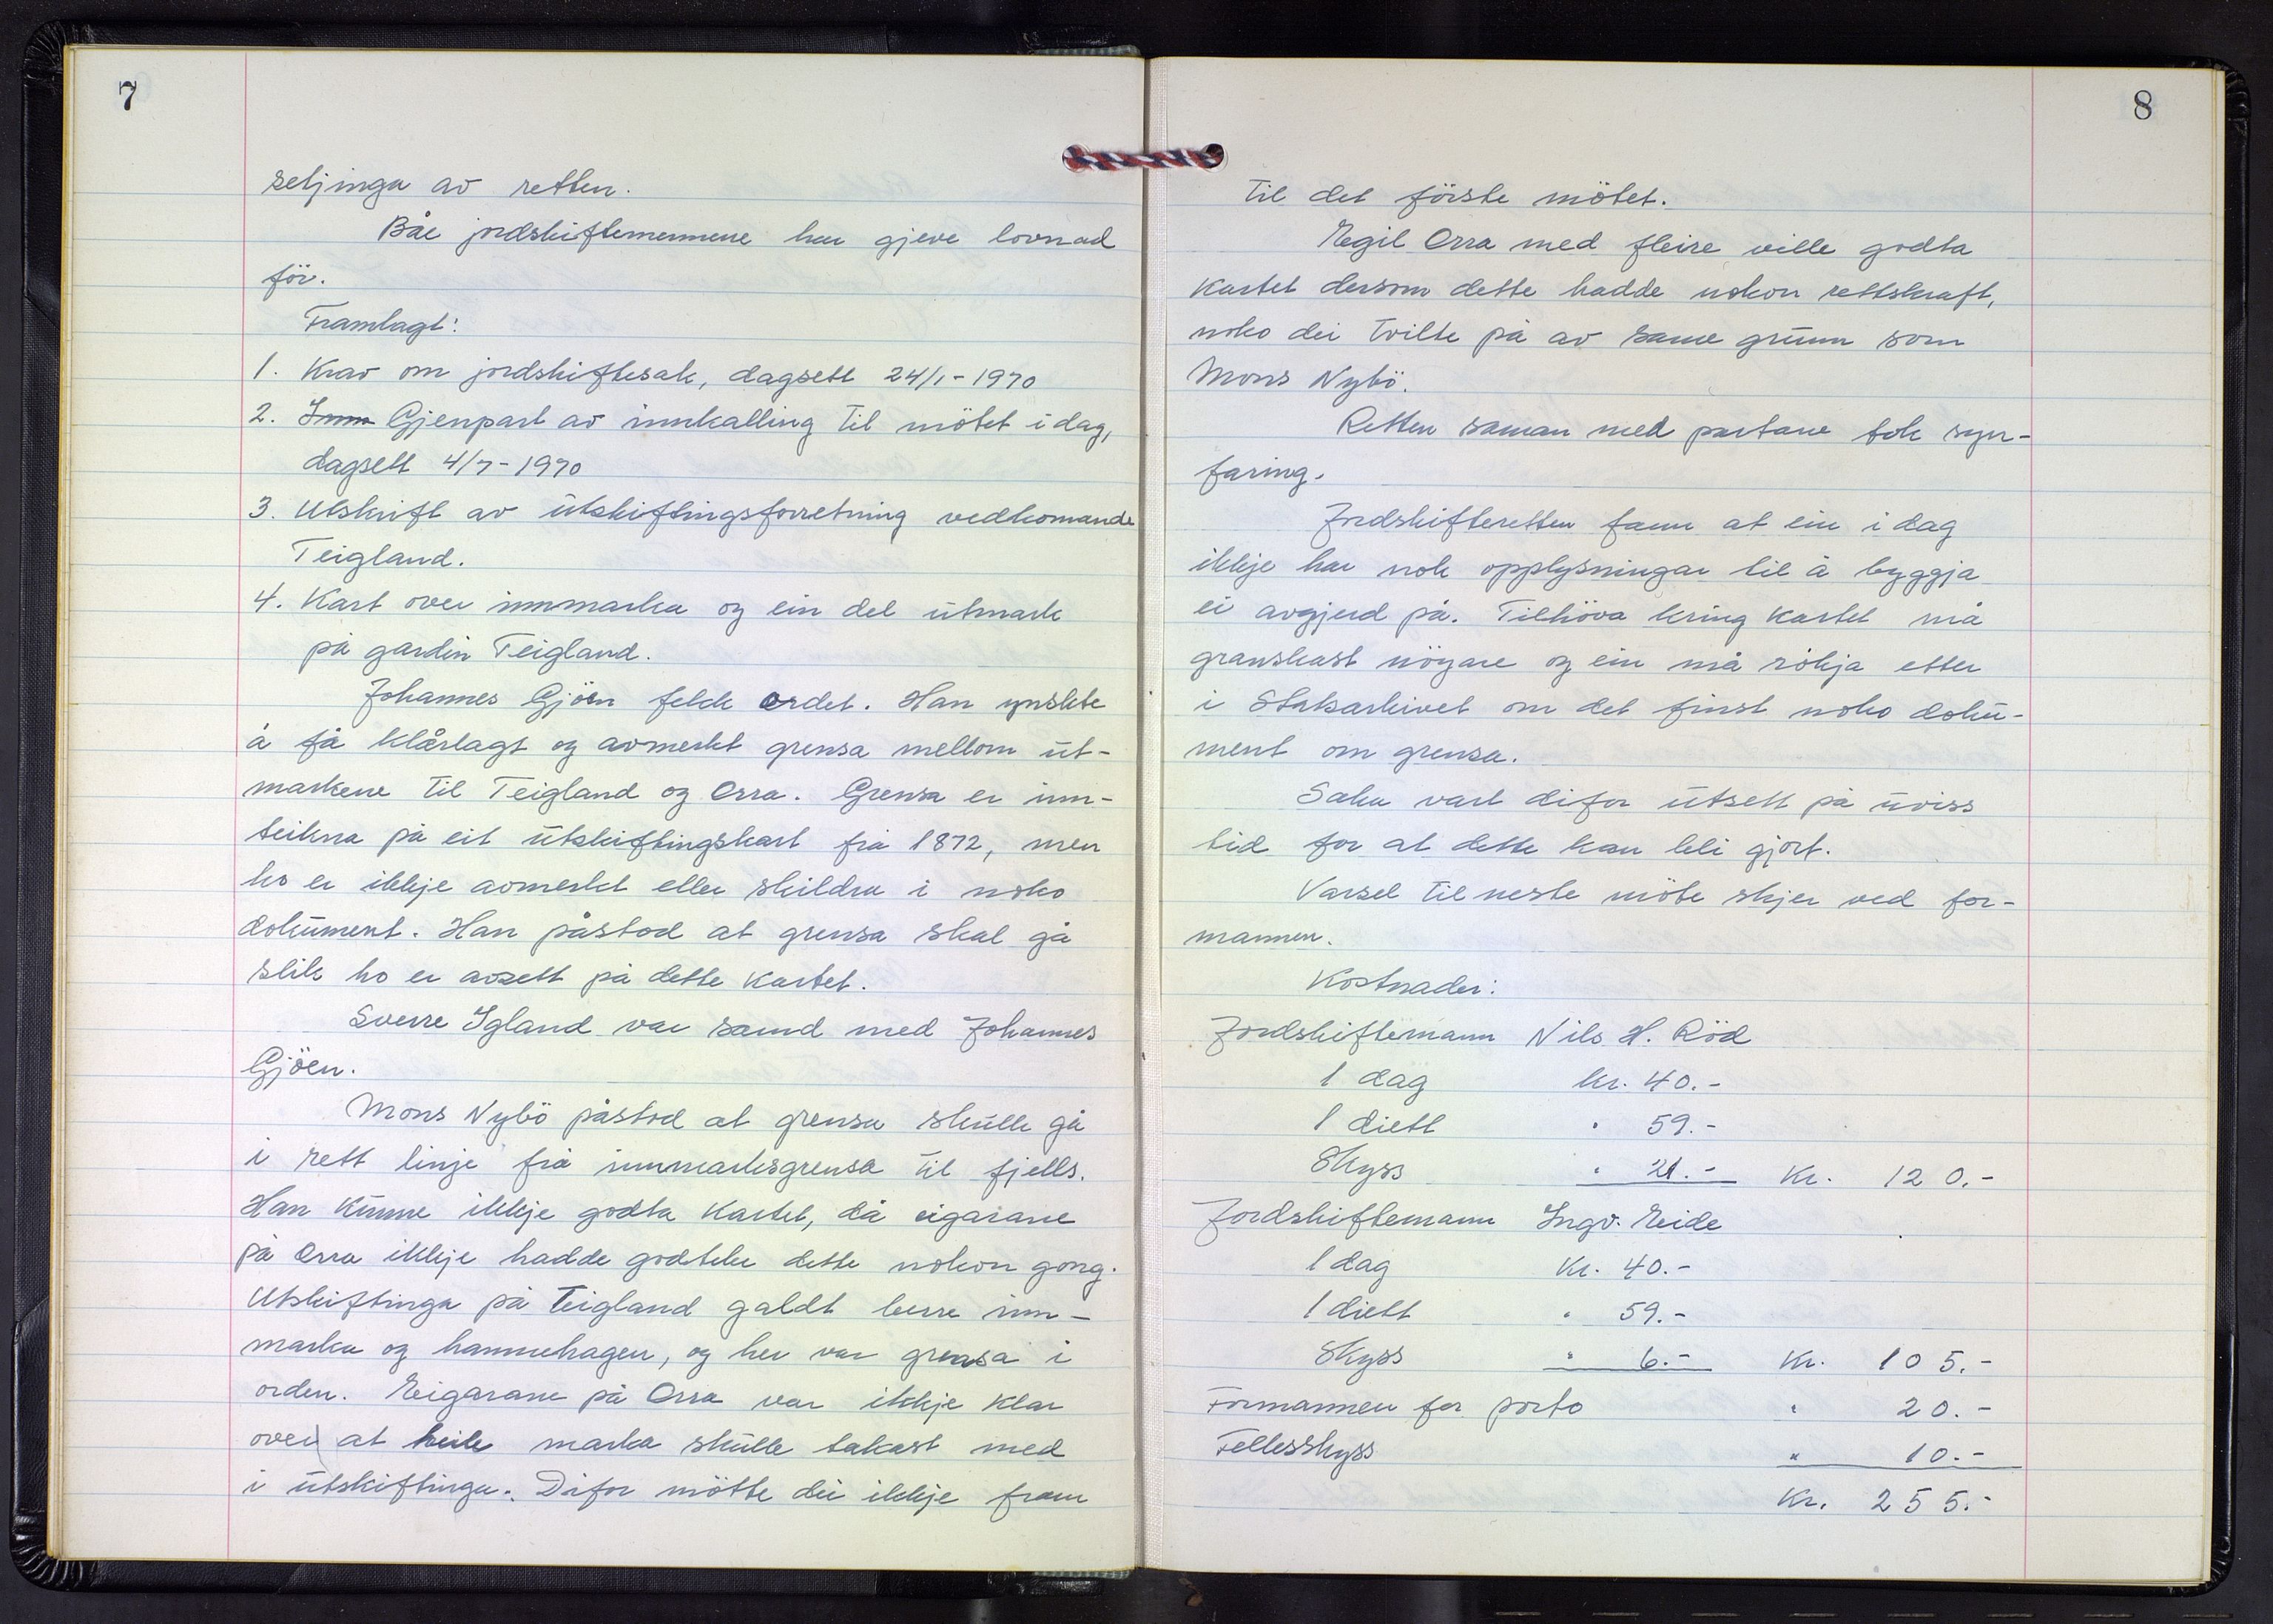 7
seljinga av retten.
Båe jordskiftemennene har gjeve lovnad
för.
Framlagt:
1. Krav om jordskiftesak, dagsett 24/1-1970
2. Inn Gjenpart av innkalling til mötet i dag,
dagsett 4/7-1970
3. Utskrift av utskiftingsforretning vedkomande
Teigland.
4. Kart over innmarka og ein del utmark
på garden Teigland.
Johannes Gjöen fekk ordet. Han ynskte
å få klårlagt og avmerkt grensa mellom ut-
markene til Teigland og Orra. Grensa er inn-
teikna på eit utskiftingskart frå 1872, men
ho er ikkje avmerkt eller skildra i noko
dokument. Han påstod at grensa skal gå
slik ho er avsett på dette kartet.
Sverre Igland var samd med Johannes
Gjöen.
Mons Nybö påstod at grensa skulle gå
i rett linje frå innmarksgrensa til fjells.
Han kunne ikkje godta kartet, då eigarane
på Orra ikkje hadde godteke dette nokon gong.
Utskiftinga på Teigland galdt berre inn-
marka og hamnehagen, og her var grensa i
orden. Eigarane på Orra var ikkje klar
over at heile marka skulle takast med
i utskiftinga. Difor mötte dei ikkje fram
8
til det förste mötet.
Egil Orra med fleire ville godta
kartet dersom dette hadde nokon rettskraft,
noko dei tvilte på av same grunn som
Mons Nybö.
Retten saman med partane tok syn-
faring.
Jordskifteretten fann at ein i dag
ikkje har nok opplysningar til å byggja
ei avgjerd på. Tilhöva kring kartet må
granskast nöyare og ein må rökja etter
i Statsarkivet om det finst noko doku-
ment om grensa.
Saka vart difor utsett på uviss
tid for at dette kan bli gjort.
Varsel til neste möte skjer ved for-
mannen.
Kostnader:
Jordskiftemann Nils H. Röd
1 dag kr. 40.-
1 diett " 59.-
Skyss " 21.- Kr. 120.-
Jordskiftemann Ingv. Eide
1 dag Kr. 40.-
1 diett " 59.-
Skyss " 6.- Kr. 105.-
Formannen for porto " 20.-
Fellesskyss " 10.-
Kr. 255.-